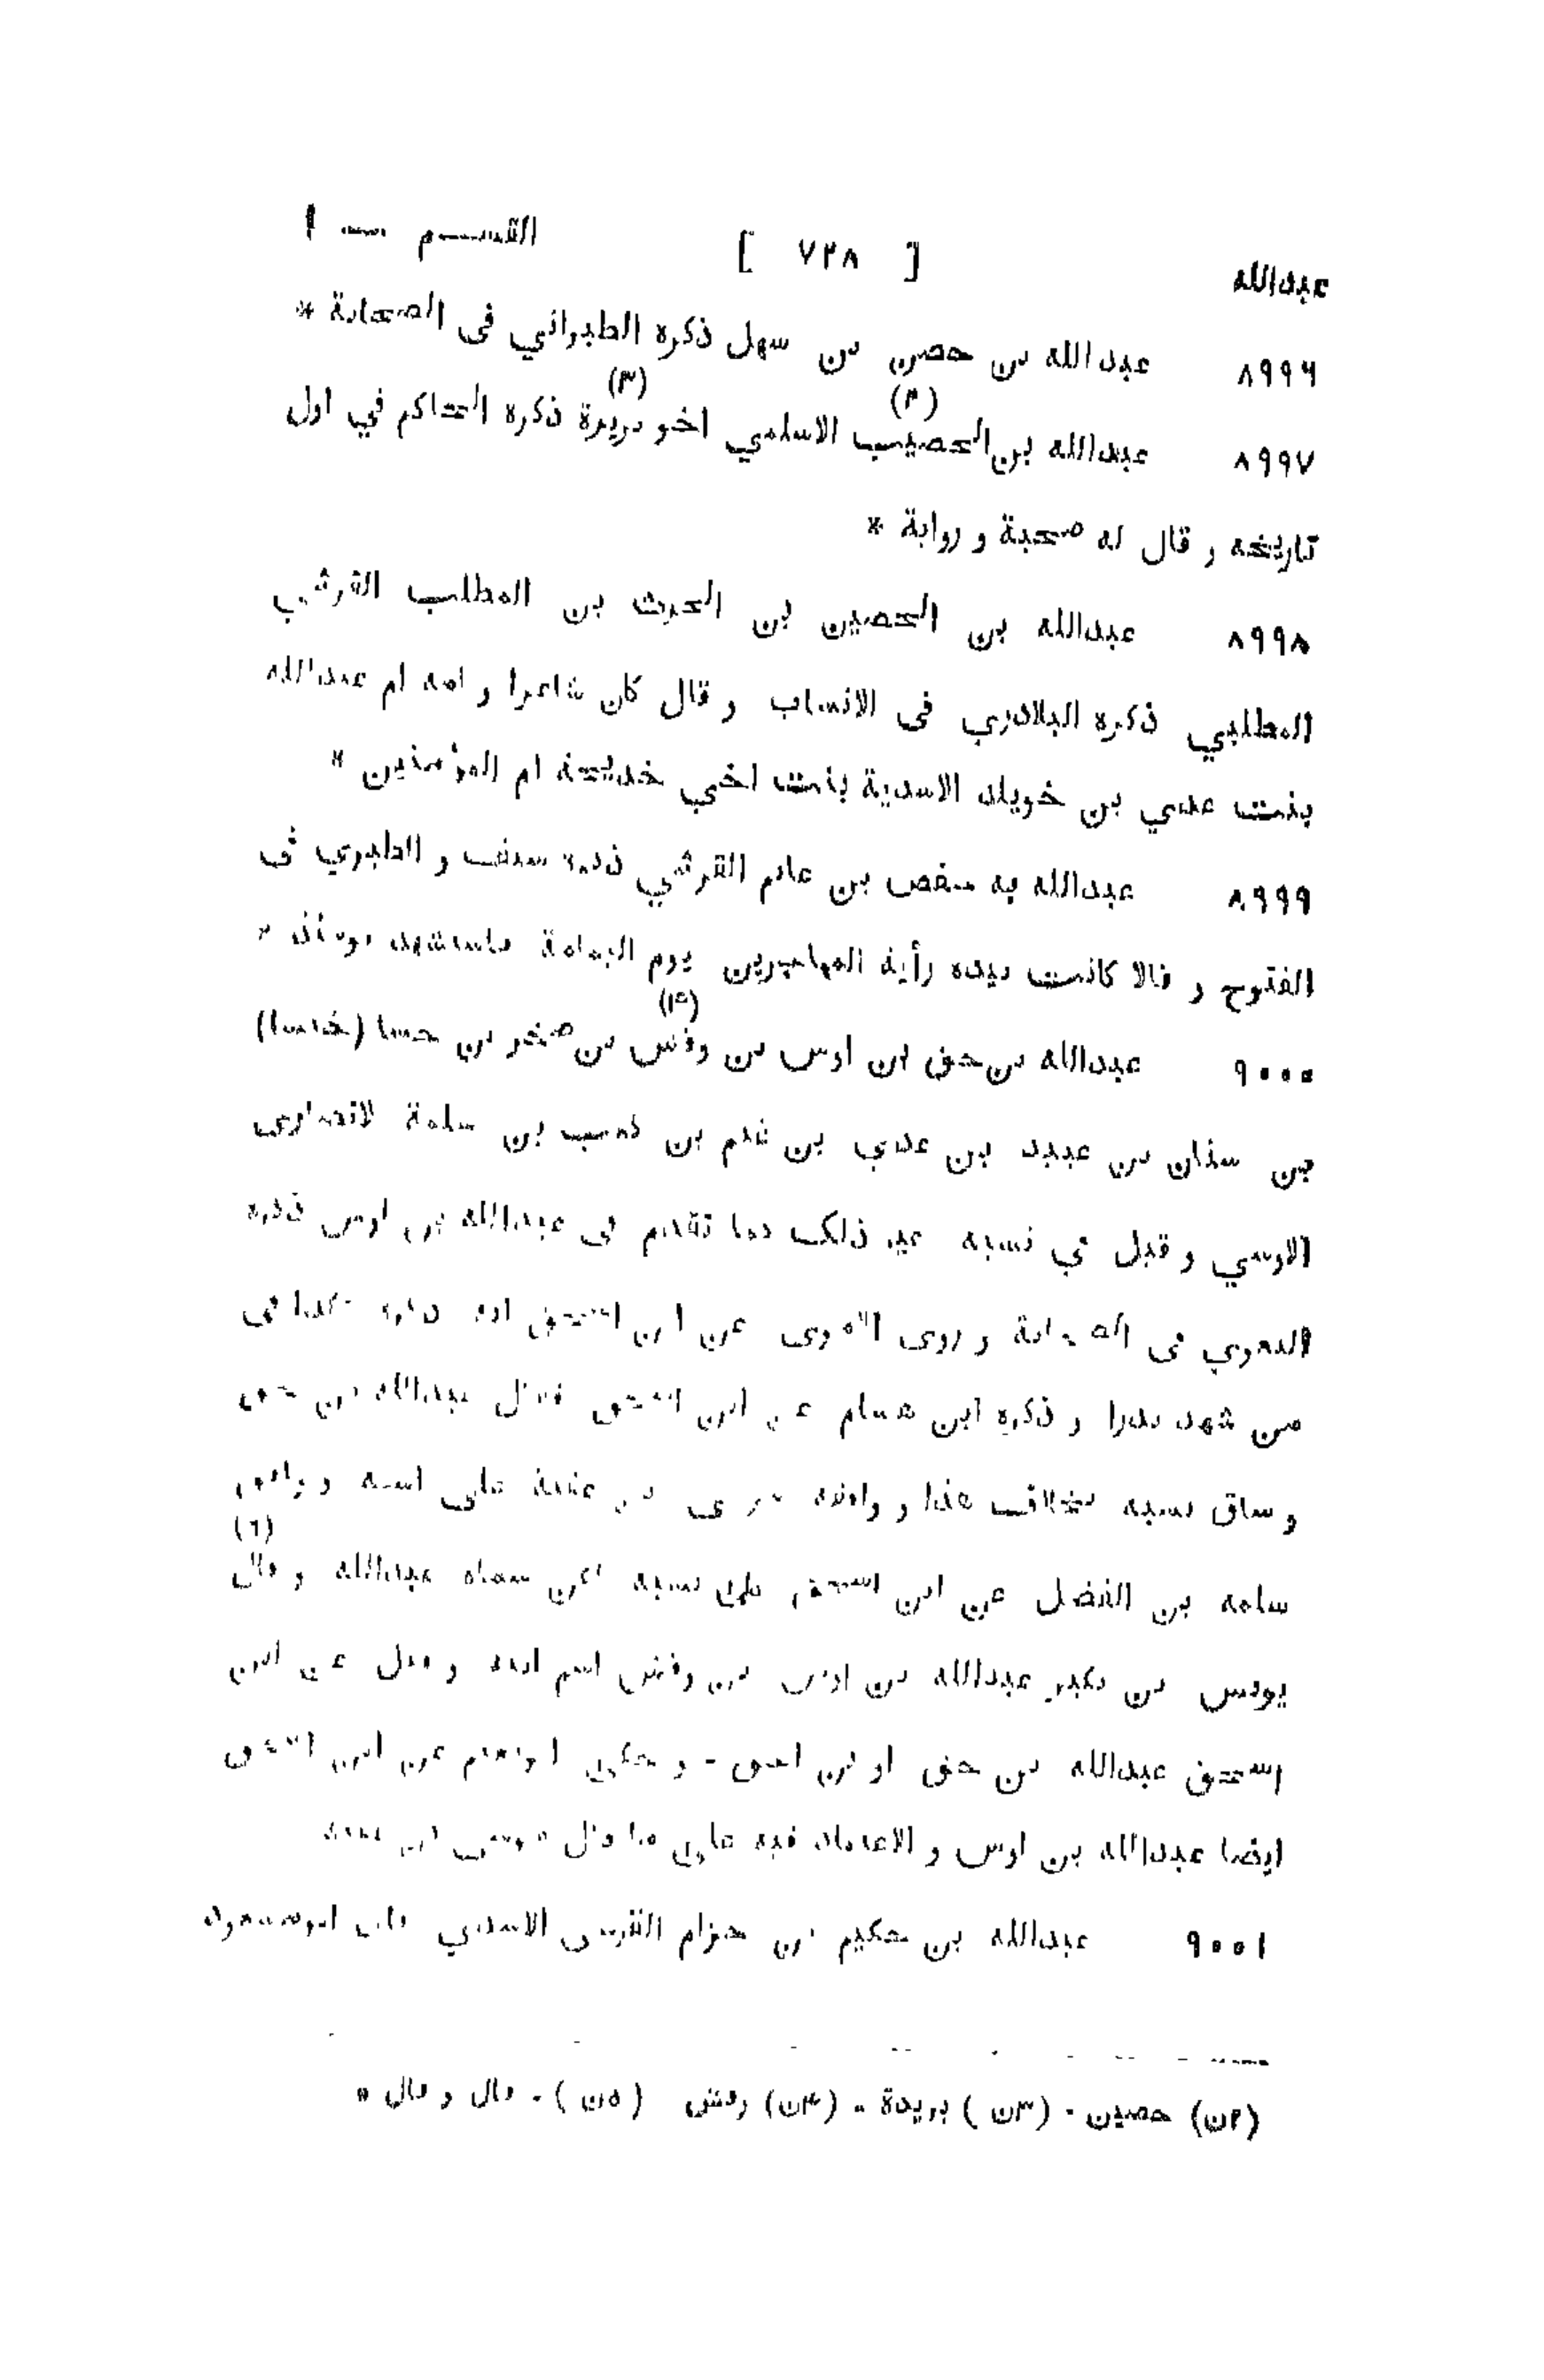 عبدالله [ ٧٢٨ ] القســم — ١
٨٩٩٦ عبدالله بن حصن بن سهل ذكره الطبراني فى الصحابة *
٨٩٩٧ عبدالله بن الحصيب (٢) الاسلمي اخو بريرة (٣) ذكره الحاكم في اول
تاريخه و قال له صحبة و رواية *
٨٩٩٨ عبدالله بن الحصين بن الحرث بن المطلب القرشي
المطلبي ذكره البلاذري فى الانساب و قال كان شاعرا و امه ام عبدالله
بنت عدي بن خويلد الاسدية بنت اخي خديجة ام المؤمنين *
٨٩٩٩ عبدالله بن حفص بن غانم القرشي ذكره سيف و الطبري فى
الفتوح و قالا كانت بيده رأية المهاجرين يوم اليمامة فاستشهد يومئذ *
٩٠٠٠ عبدالله بن حق ابن اوس بن وقش (٤) بن صخر بن حسا (خنسا)
بن سنان بن عبيد بن عدي بن غنم بن كعب بن سلمة لانصارى
الاوسي و قيل في نسبه غير ذلك كما تقدم فى عبدالله بن اوس ذكره
البغوي فى الصحابة و روى الاموى عن ابن اسحق انه ذكره هكذا في
من شهد بدرا و ذكره ابن هشام عن ابن اسحق فقال عبدالله بن حق
و ساق نسبه بخلاف هذا و وافقه بن عقبة على اسمه و وافق
سلمه بن الفضل عن ابن اسحق على نسبه لكن سماه عبدالله و قال (٦)
يونس بن بكير عبدالله بن اوس بن وقش اسم ابيه و قيل عن ابن
اسحق عبدالله بن حق او بن احق - و حكى ابو نعيم عن ابن اسحق
ايضا عبدالله بن اوس و الاعتماد فيه على ما قال موسى بن عقبة
٩٠٠١ عبدالله بن حكيم بن حزام القرشى الاسدي
(٢ن) حصين - (٣ن) بريدة - (٤ن) رقش (٥ن) - قال و قال *